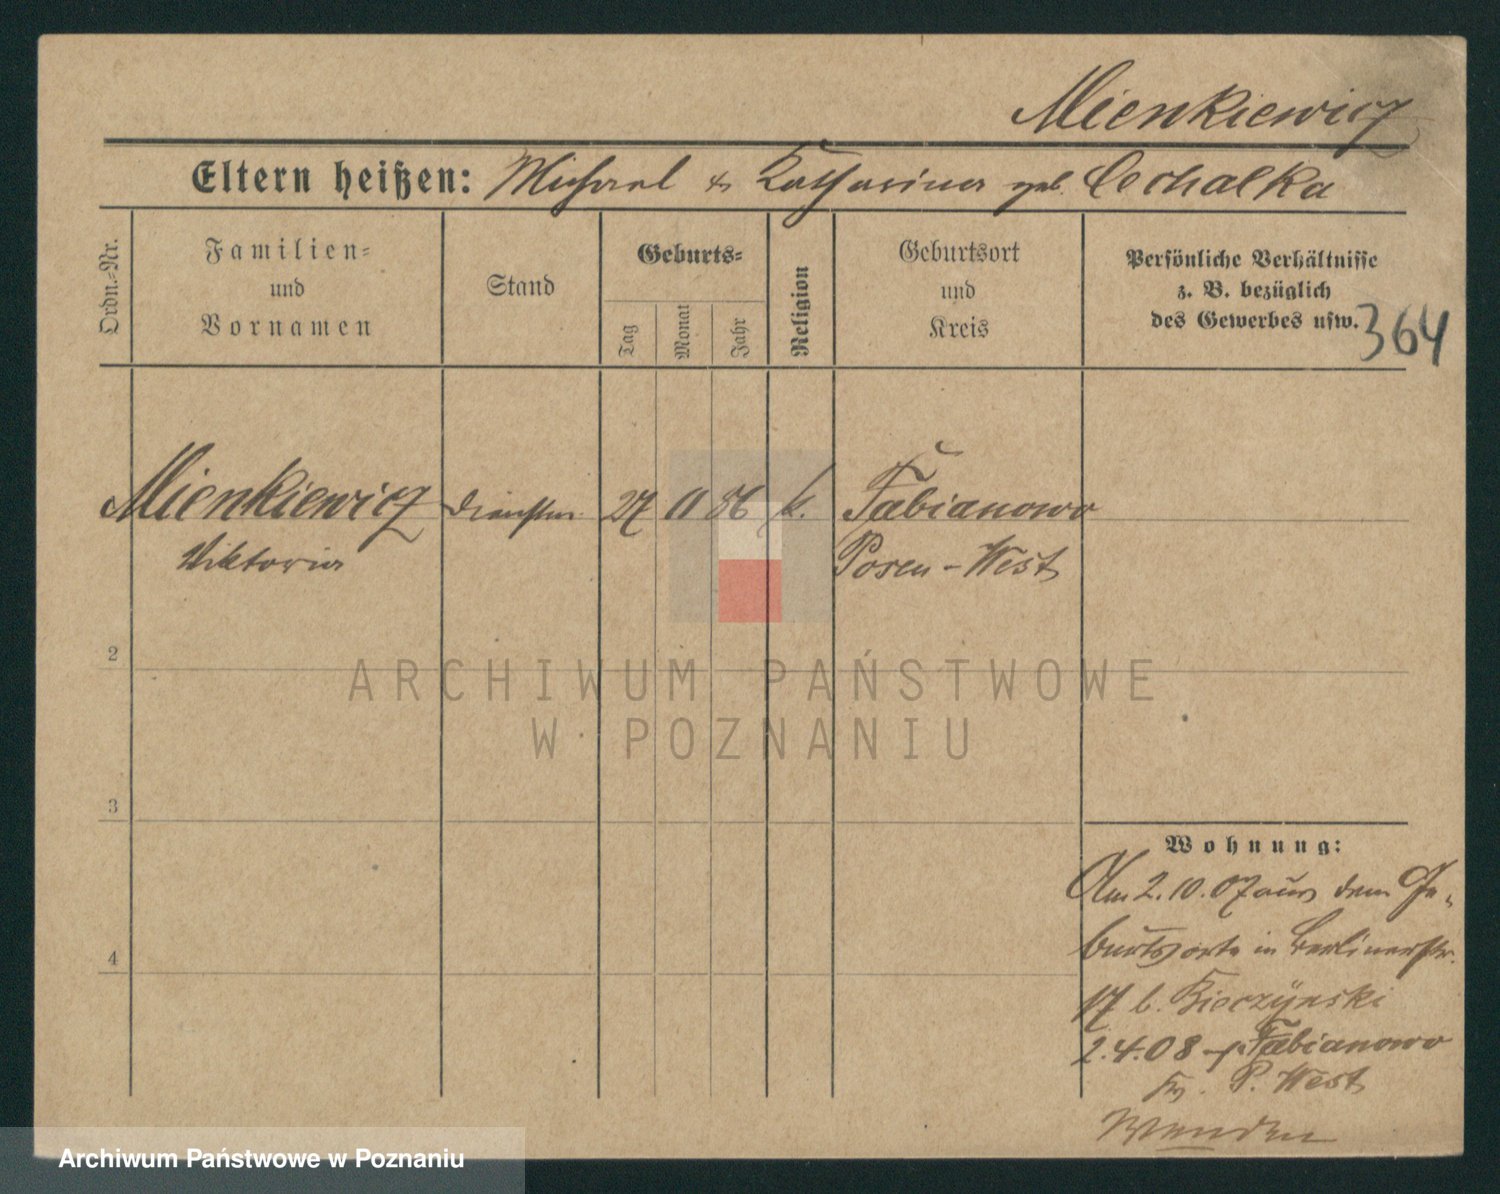 Mienkiewicz
Eltern heißen: Michael & Katharina geb. Cechalka
Ordn.-Nr.
Familien-
und
Vornamen
Stand
Geburts-
Tag
Monat
Jahr
Religion
Geburtsort
und
Kreis
Persönliche Verhältnisse
z. B. bezüglich
des Gewerbes usw.
364
Mienkiewicz
Viktoria
Dienstm.
27 11 86 k.
Fabianowo
Posen-West
2
3
4
Wohnung:
Am 2.10.07 aus dem Ge-
burtsorte in Berlinerstr.
17 b.
2.4.08 Fabianowo
P. West
ARCHIWUM PAŃSTWOWE
W POZNANIU
Archiwum Państwowe w Poznaniu